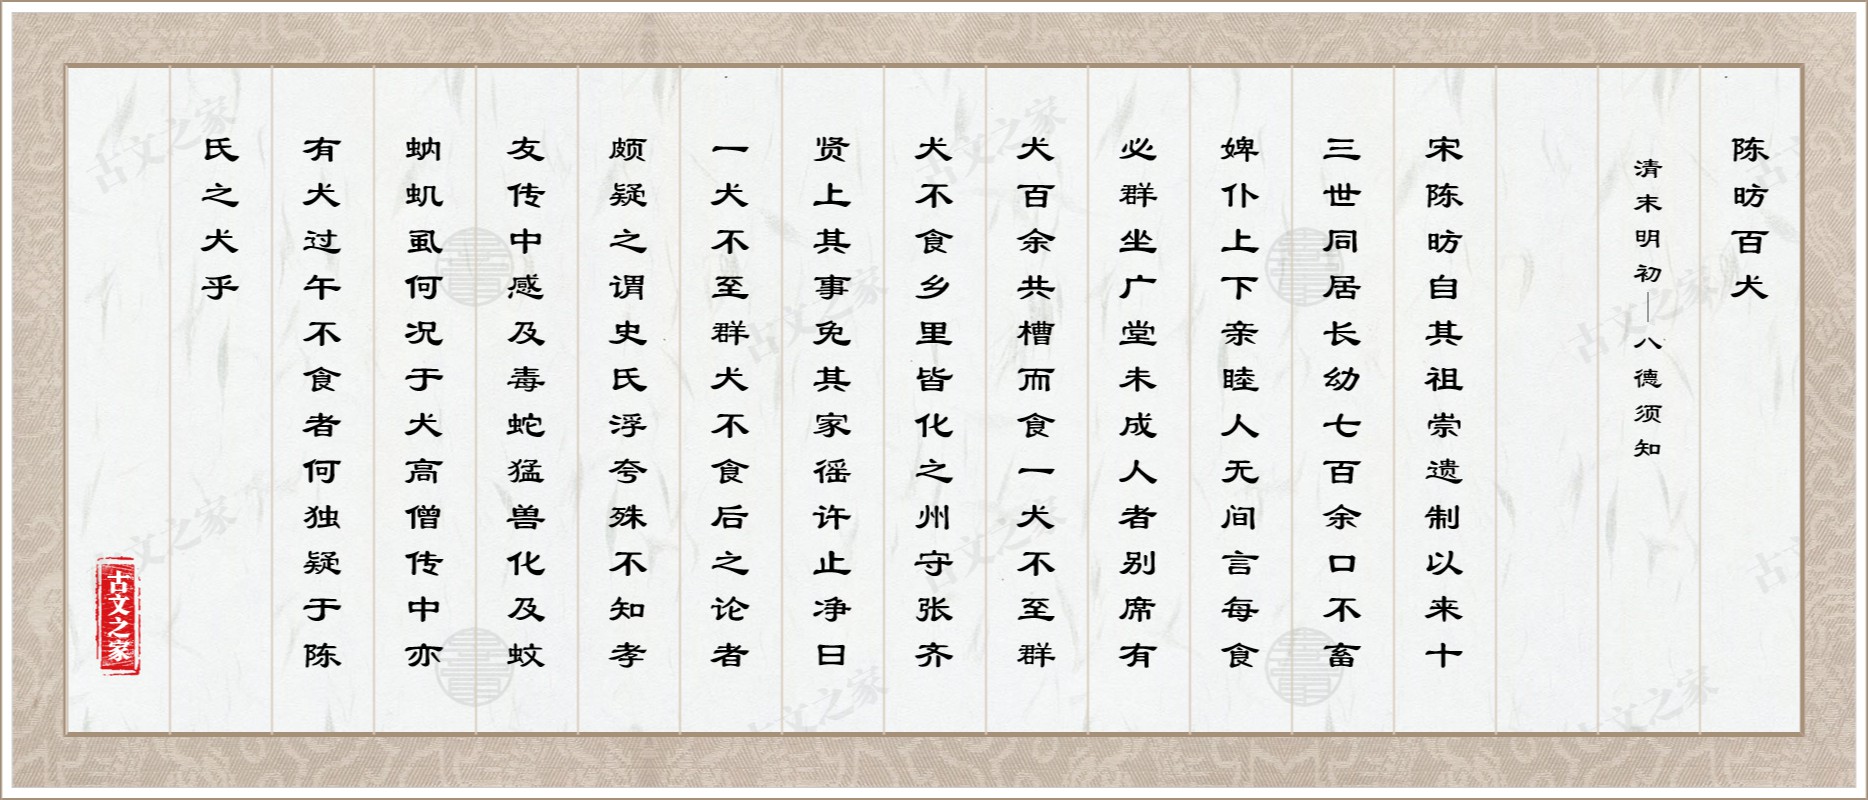 陈昉百犬
清末明初—八德须知
宋陈昉自其祖崇遗制以来十
三世同居长幼七百余口不畜
婢仆上下亲睦人无间言每食
必群坐广堂未成人者别席有
犬百余共槽而食一犬不至群
犬不食乡里皆化之州守张齐
贤上其事免其家徭许止净曰
一犬不至群犬不食后之论者
颇疑之谓史氏浮夸殊不知孝
友传中感及毒蛇猛兽化及蚊
蚋虮虱何况于犬高僧传中亦
有犬过午不食者何独疑于陈
氏之犬乎
古文之家